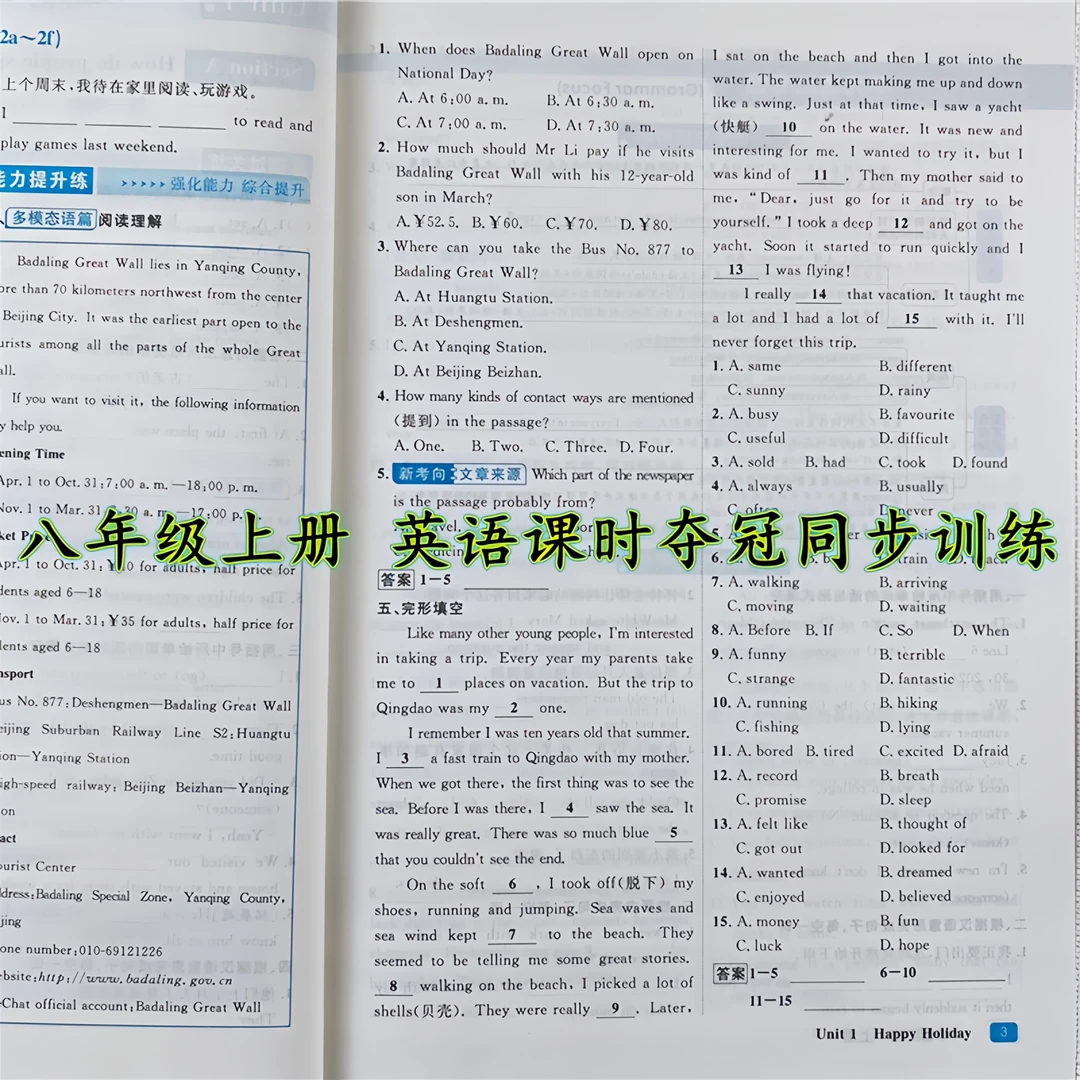 2a～2f)
上个周末,我待在家里阅读、玩游戏。
I ________ ________ ________ to read and
play games last weekend.
能力提升练 >>>>> 强化能力 综合提升
多模态语篇 阅读理解
Badaling Great Wall lies in Yanqing County,
more than 70 kilometers northwest from the center
Beijing City. It was the earliest part open to the
tourists among all the parts of the whole Great
Wall.
If you want to visit it, the following information
may help you.
Opening Time
Apr. 1 to Oct. 31:7:00 a. m. —18:00 p. m.
Nov. 1 to Mar. 31: 30 a. m. —17:00 p.
Apr. 1 to Oct. 31:¥ 0 for adults, half price for
students aged 6—18
Nov. 1 to Mar. 31:¥35 for adults, half price for
students aged 6—18
Transport
Bus No. 877:Deshengmen—Badaling Great Wall
Beijing Suburban Railway Line S2:Huangtu
Station—Yanqing Station
High-speed railway: Beijing Beizhan—Yanqing
Station
Contact
Tourist Center
Address:Badaling Special Zone, Yanqing County,
Beijing
Phone number:010-69121226
Website:http://www.badaling.gov.cn
Chat official account:Badaling Great Wall
1. When does Badaling Great Wall open on
National Day?
A. At 6:00 a. m. B. At 6:30 a. m.
C. At 7:00 a. m. D. At 7:30 a. m.
2. How much should Mr Li pay if he visits
Badaling Great Wall with his 12-year-old
son in March?
A. ¥52.5. B. ¥60. C. ¥70. D. ¥80.
3. Where can you take the Bus No. 877 to
Badaling Great Wall?
A. At Huangtu Station.
B. At Deshengmen.
C. At Yanqing Station.
D. At Beijing Beizhan.
4. How many kinds of contact ways are mentioned
(提到) in the passage?
A. One. B. Two. C. Three. D. Four.
5. 新考向 文章来源 Which part of the newspaper
is the passage probably from?
答案 1—5 ________
五、完形填空
Like many other young people, I'm interested
in taking a trip. Every year my parents take
me to 1 places on vacation. But the trip to
Qingdao was my 2 one.
I remember I was ten years old that summer.
I 3 a fast train to Qingdao with my mother.
When we got there, the first thing was to see the
sea. Before I was there, I 4 saw the sea. It
was really great. There was so much blue 5
that you couldn't see the end.
On the soft 6 , I took off(脱下) my
shoes, running and jumping. Sea waves and
sea wind kept 7 to the beach. They
seemed to be telling me some great stories.
8 walking on the beach, I picked a lot of
shells(贝壳). They were really 9 . Later,
I sat on the beach and then I got into the
water. The water kept making me up and down
like a swing. Just at that time, I saw a yacht
(快艇) 10 on the water. It was new and
interesting for me. I wanted to try it, but I
was kind of 11 . Then my mother said to
me, “Dear, just go for it and try to be
yourself.” I took a deep 12 and got on the
yacht. Soon it started to run quickly and I
13 I was flying!
I really 14 that vacation. It taught me
a lot and I had a lot of 15 with it. I'll
never forget this trip.
1. A. same B. different
C. sunny D. rainy
2. A. busy B. favourite
C. useful D. difficult
3. A. sold B. had C. took D. found
4. A. always B. usually
C. often D. never
八年级上册 英语课时夺冠同步训练
7. A. walking B. arriving
C. moving D. waiting
8. A. Before B. If C. So D. When
9. A. funny B. terrible
C. strange D. fantastic
10. A. running B. hiking
C. fishing D. lying
11. A. bored B. tired C. excited D. afraid
12. A. record B. breath
C. promise D. sleep
13. A. felt like B. thought of
C. got out D. looked for
14. A. wanted B. dreamed
C. enjoyed D. believed
15. A. money B. fun
C. luck D. hope
答案 1—5 ________ 6—10 ________
11—15 ________
Unit 1 Happy Holiday 3